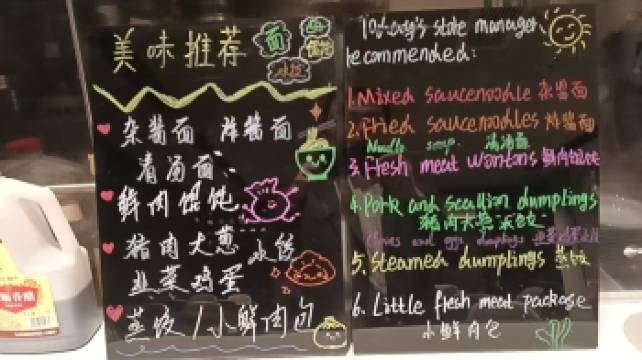 美味推荐
面
水饺
杂酱面 炸酱面
清汤面
鲜肉馄饨
猪肉大葱 水饺
韭菜鸡蛋
蒸饺/小鲜肉包
Today's store manager
recommended:
1. Mixed saucenoodle 杂酱面
2. Fried saucenoodles 炸酱面
Noodle soup 清汤面
3. Fresh meat wontons 鲜肉馄饨
4. Pork and scallion dumplings
猪肉大葱
and eggs dumplings 韭菜鸡蛋水饺
5. Steamed dumplings 蒸饺
6. Little fresh meat package
小鲜肉包
香醋